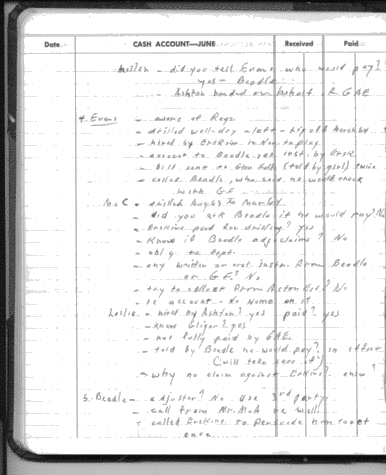 Date CASH ACCOUNT—JUNE Received Paid
Miller - did you tell Evans who would pay?
yes - Beadle
- Ashton bonded on behalf of GAE
4. Evans - aware of Regs
- drilled well - dry - left - rip off March 64
- hired by Erskine in Nov to
- account to Beadle inst. by Ersk
- bill sent to Glen Falls (told by girl) twice
- called Beadle, who said he would check
with G.F.
McC - drilled Aug 63 to Mar 64
- did you ask Beadle if he would pay? No
- Erskine paid for drilling? yes
- Know if Beadle adj. claims? No
- oblig. to Dept.
- any written or instr. from Beadle
or G.F.? No.
- try to collect from Aston Ltd? No
- re account - no name on it
Leslie - hired by Ashton? yes paid? yes
- Know ? yes
- not fully paid by GAE
- told by Beadle he would pay? in effect
("will take care of")
- why no claim against Erskine?
5. Beadle - adjuster? No. use 3rd party
- call from Mr. re well
- called Erskine to persuade him to
once